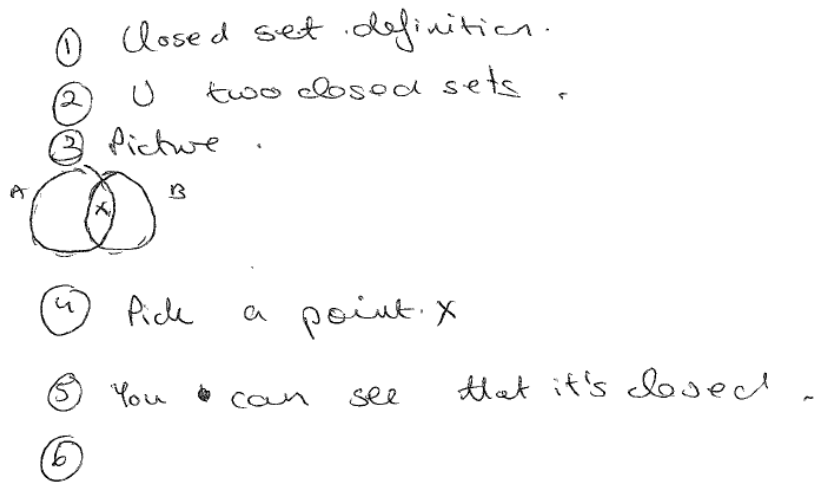 ① Closed set definition.
② U two closed sets.
③ Picture.
A B
x
④ Pick a point. x
⑤ You can see that it's closed.
⑥